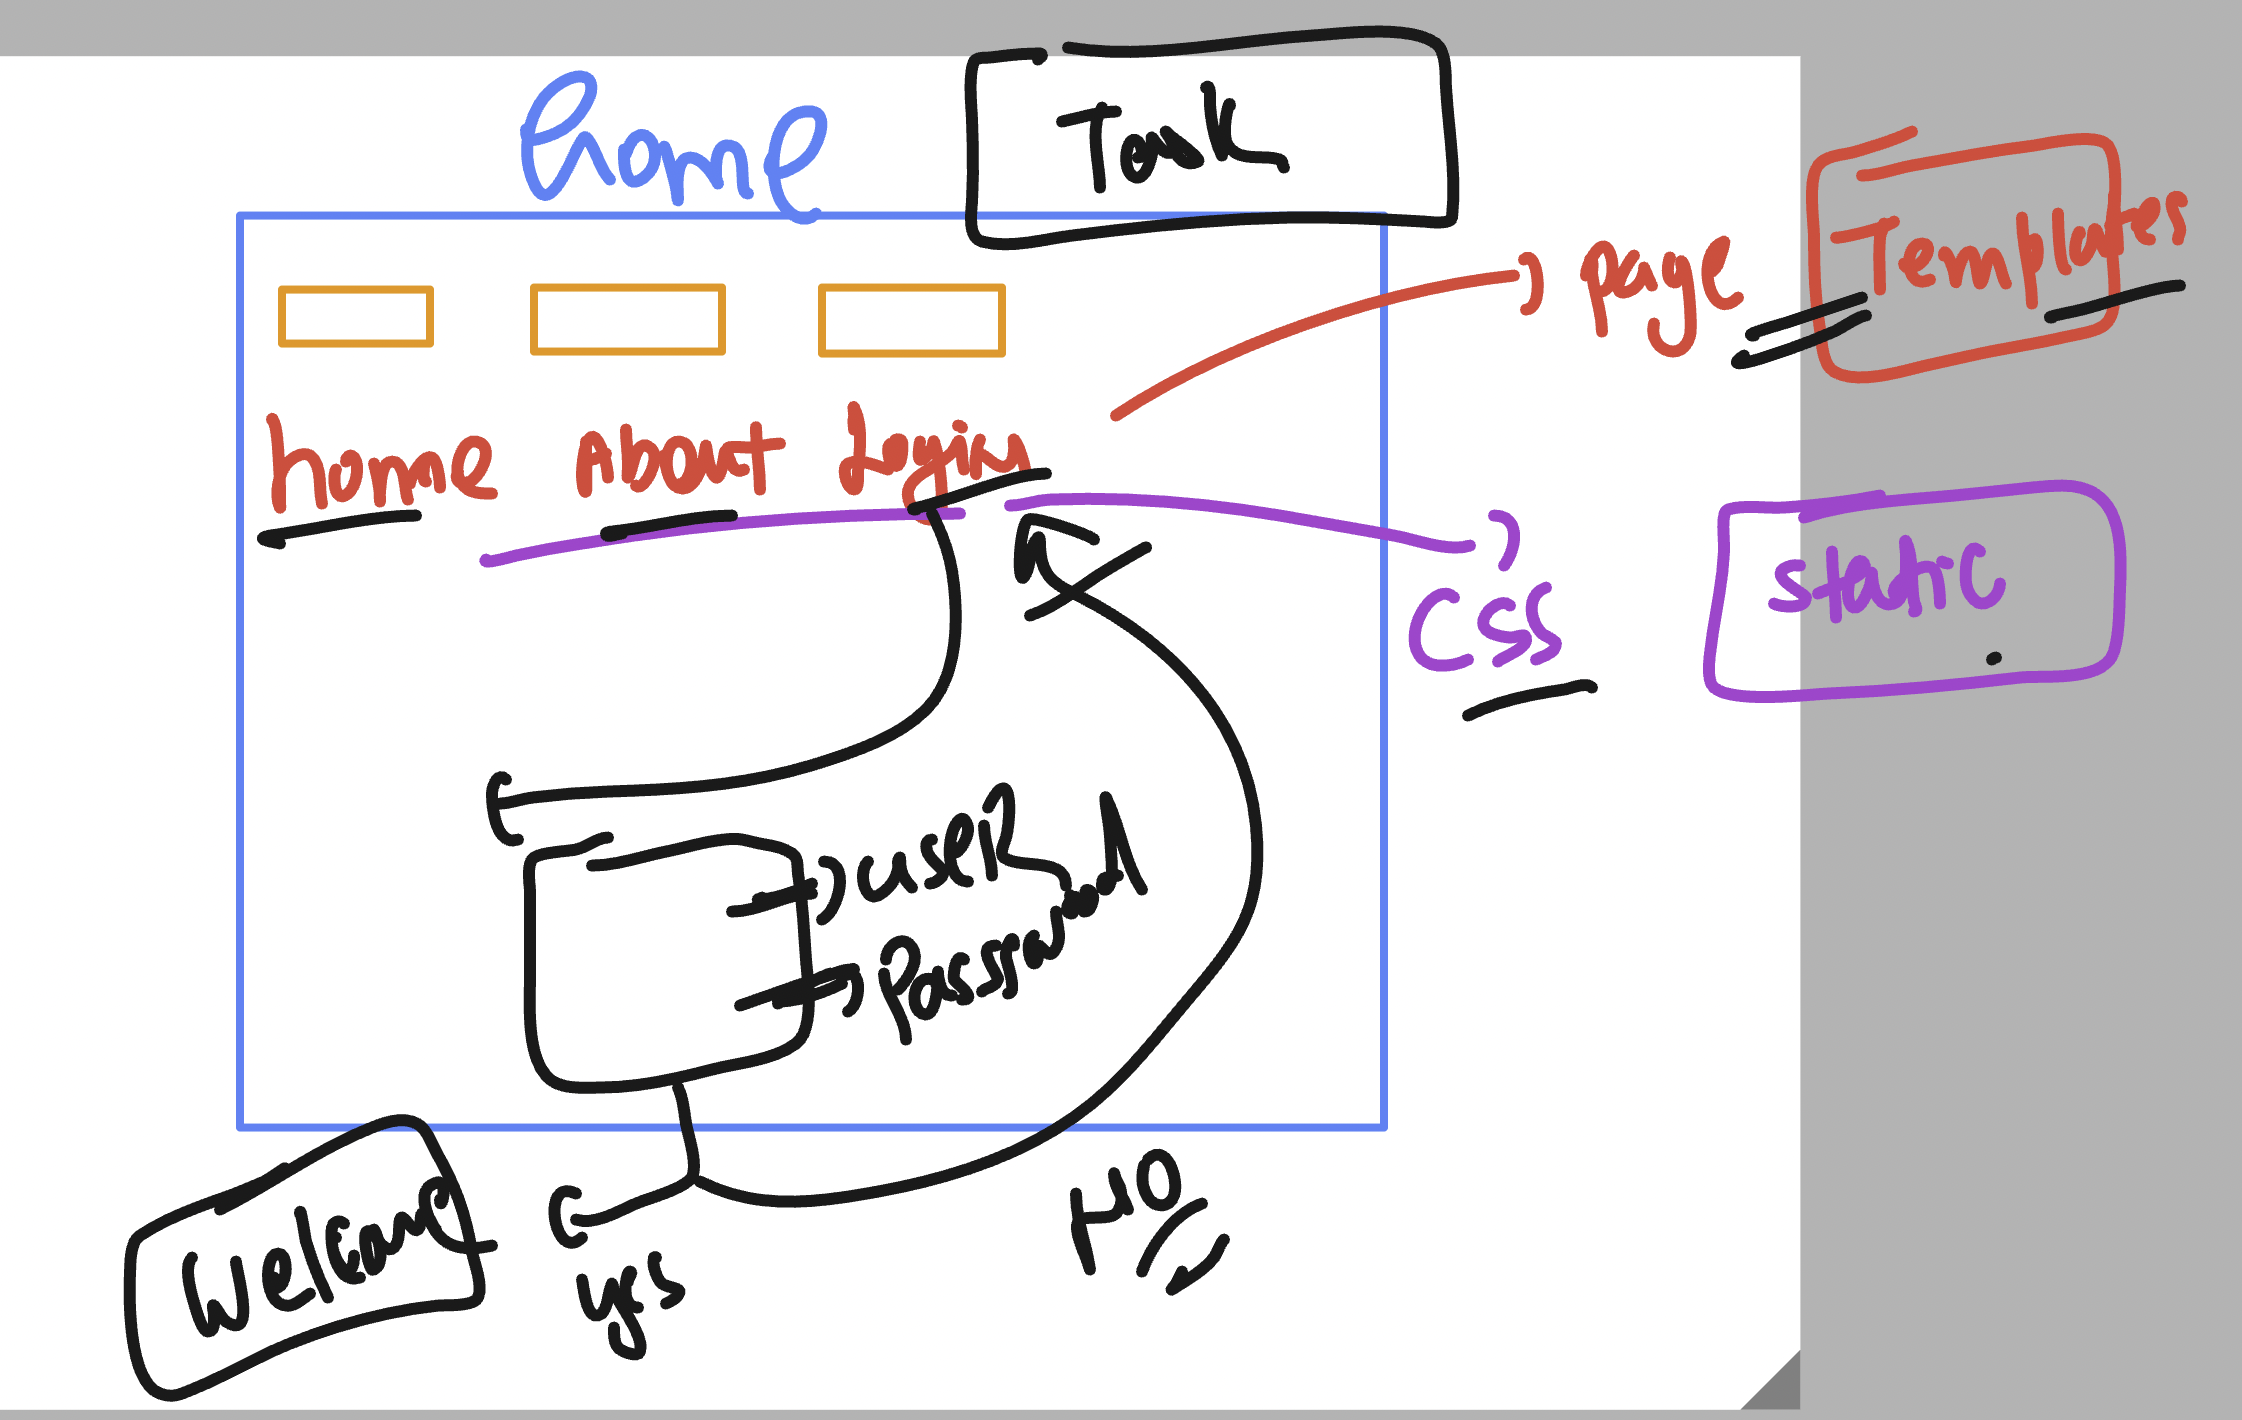 home
Task
page
Templates
home About Login
CSS
static
useR
Password
Welcome
yes
NO